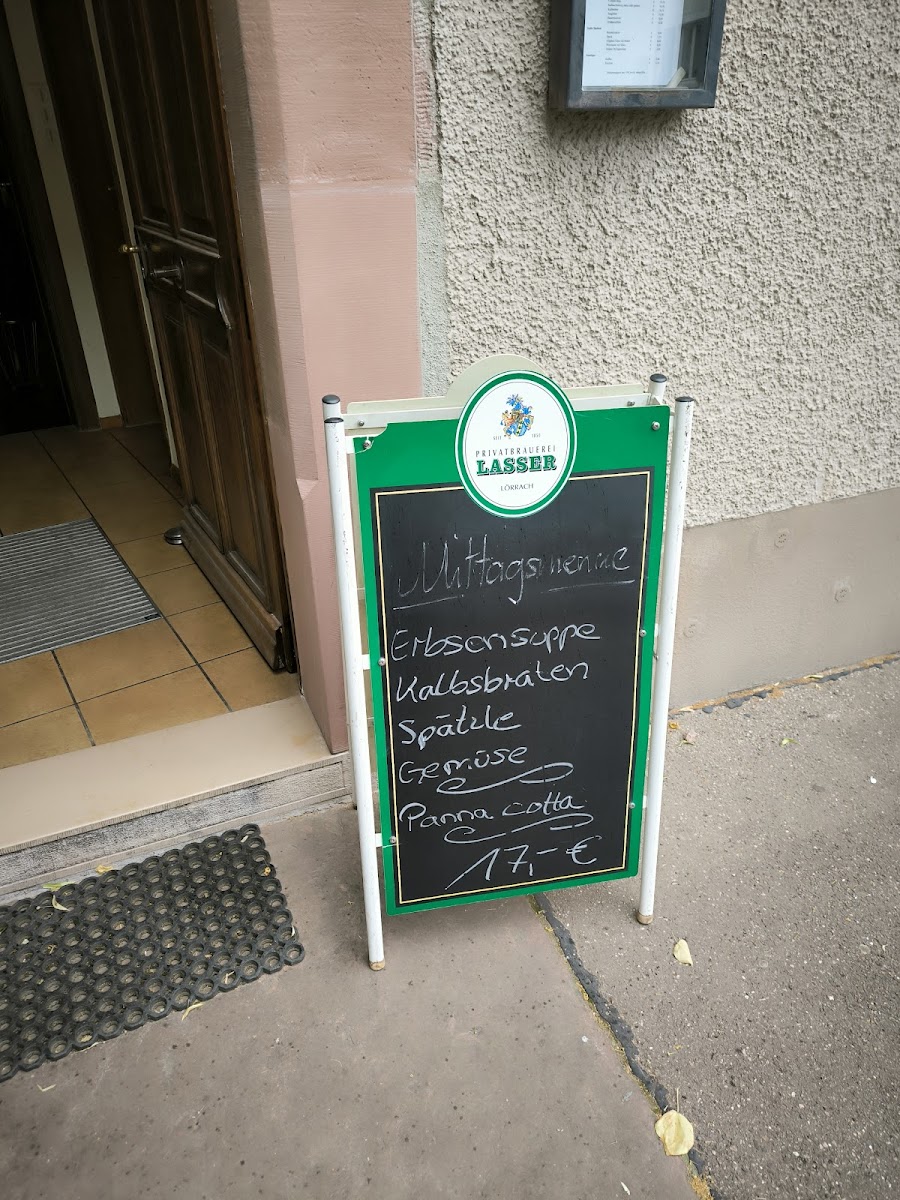 SEIT 1850
PRIVATBRAUEREI
LASSER
LÖRRACH
Mittagsmenue
Erbsensuppe
Kalbsbraten
Spätzle
Gemüse
Panna cotta
17,- €